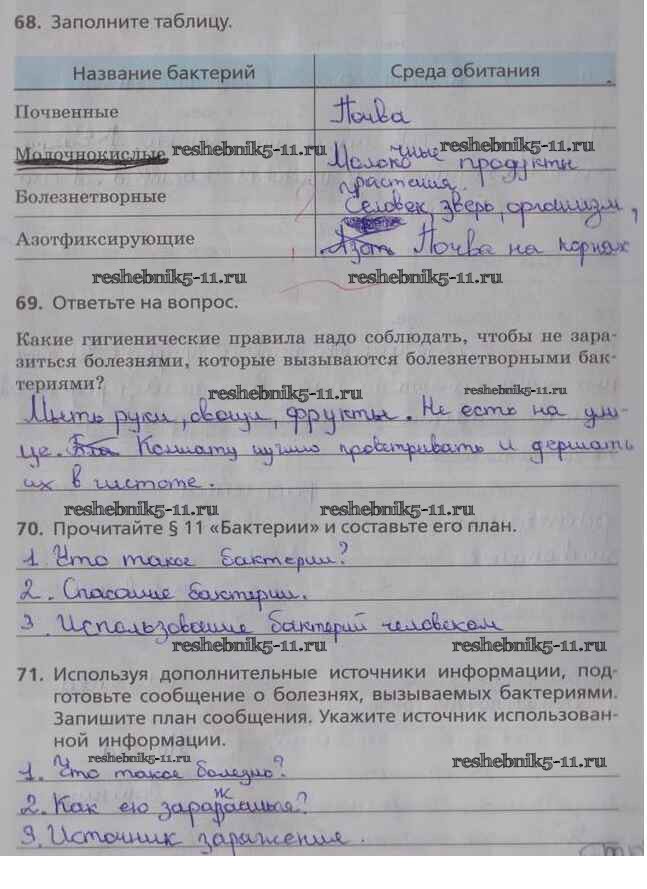 68. Заполните таблицу.
Название бактерий Среда обитания
Почвенные Почва
Молочнокислые reshebnik5-11.ru Молочные продукты reshebnik5-11.ru
растения.
Болезнетворные Человек, зверь, организм,
Азотфиксирующие Азот Почва на корнях
reshebnik5-11.ru reshebnik5-11.ru
69. Ответьте на вопрос.
Какие гигиенические правила надо соблюдать, чтобы не зара-
зиться болезнями, которые вызываются болезнетворными бак-
териями?
reshebnik5-11.ru reshebnik5-11.ru
Мыть руки, овощи, фрукты. Не есть на ули-
це. Комнату нужно проветривать и держать
их в чистоте.
reshebnik5-11.ru reshebnik5-11.ru
70. Прочитайте § 11 «Бактерии» и составьте его план.
1. Что такое бактерии?
2. Спасание бактерии.
3. Использование бактерий человеком
reshebnik5-11.ru reshebnik5-11.ru
71. Используя дополнительные источники информации, под-
готовьте сообщение о болезнях, вызываемых бактериями.
Запишите план сообщения. Укажите источник использован-
ной информации.
reshebnik5-11.ru reshebnik5-11.ru
1. Что такое болезнь?
2. Как ею
3. Источник заражения.